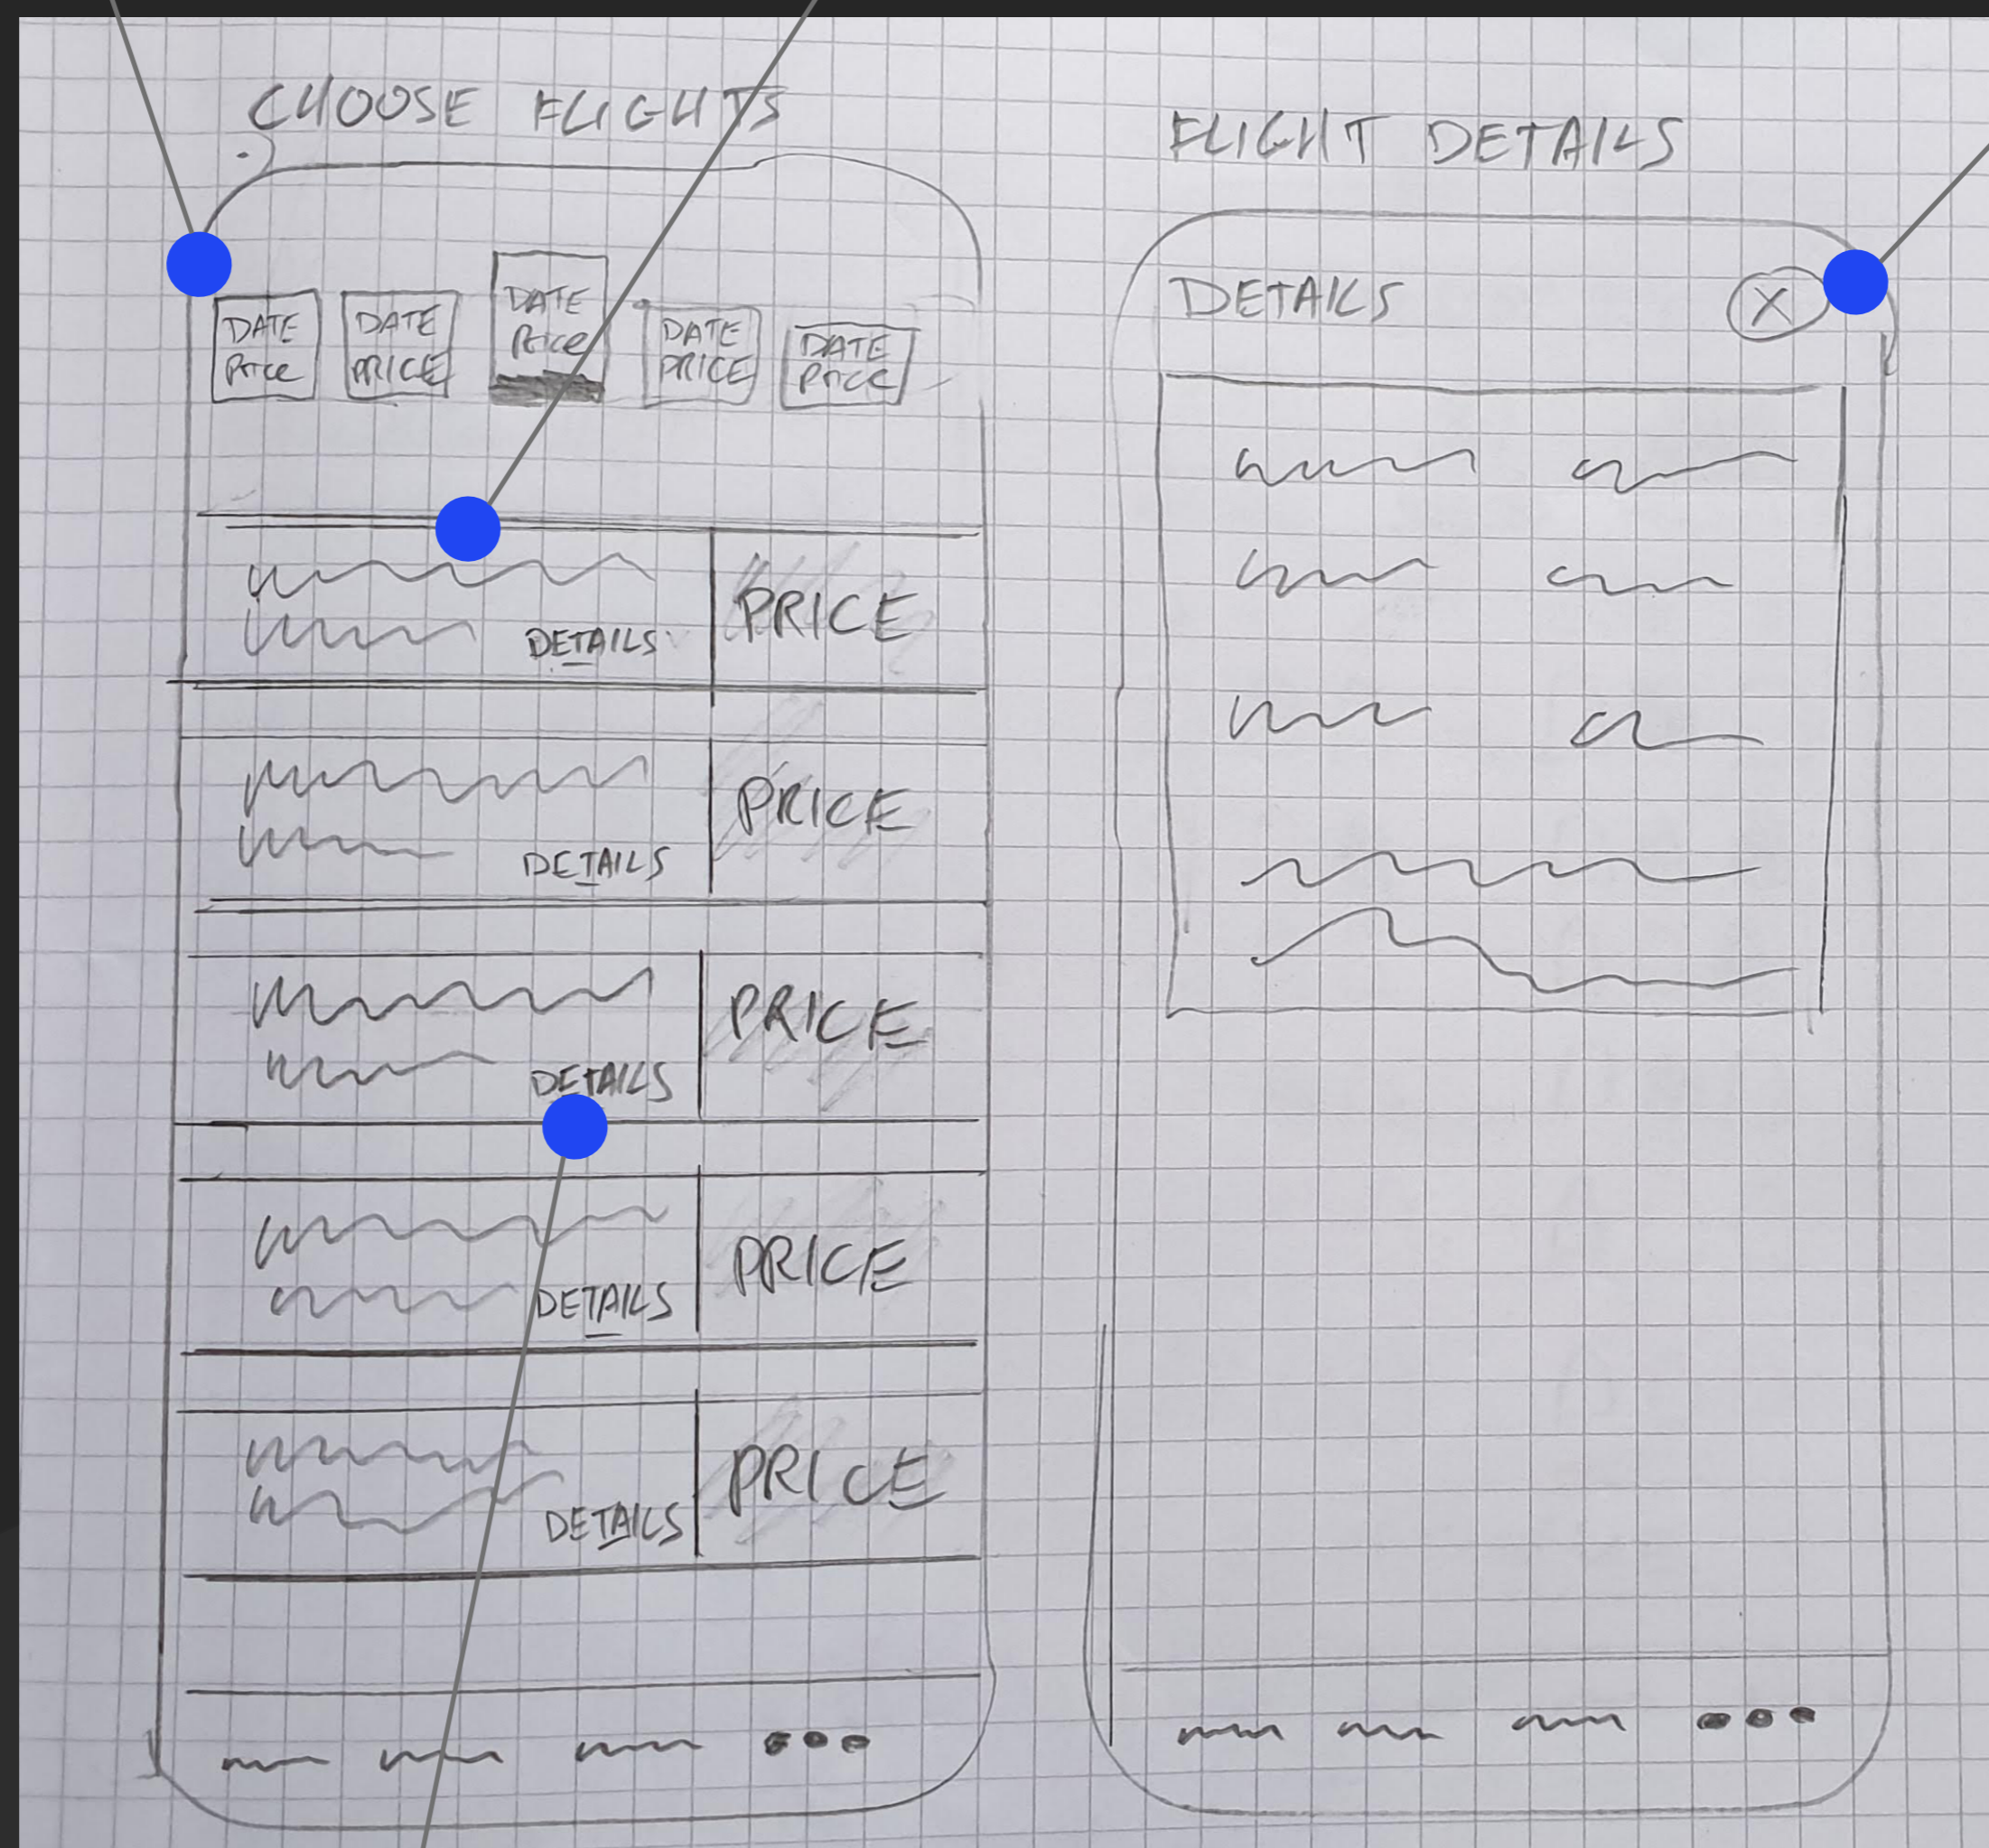 CHOOSE FLIGHTS
DATE
Price
DATE
PRICE
DATE
Price
DATE
PRICE
DATE
Price
DETAILS
PRICE
DETAILS
PRICE
DETAILS
PRICE
DETAILS
PRICE
DETAILS
PRICE
FLIGHT DETAILS
DETAILS
X